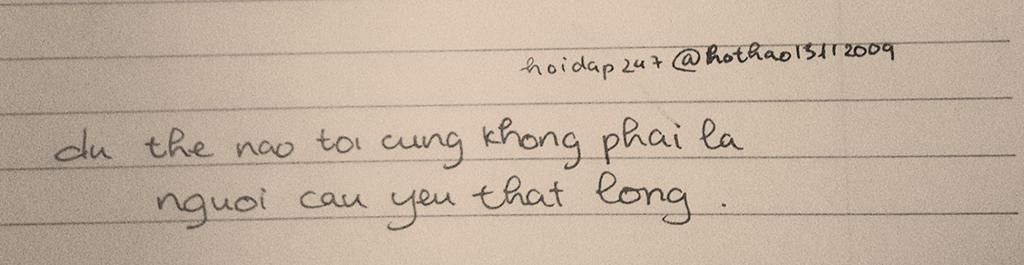 hoidap 247 @hothao15112009
du the nao toi cung khong phai la
nguoi cau yeu that long .